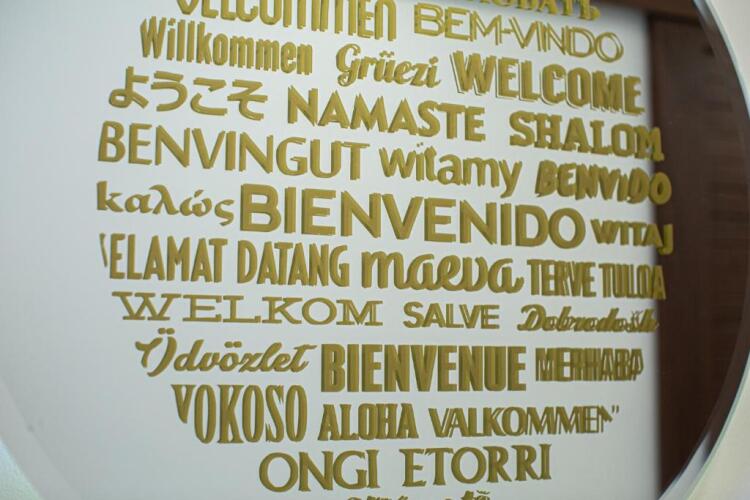 VELCOMMEN BEM-VINDO
Willkommen Grüezi WELCOME
ようこそ NAMASTE SHALOM
BENVINGUT witamy BENVIDO
καλώς BIENVENIDO WITAJ
SELAMAT DATANG maeva TERVE TULOA
WELKOM SALVE Dobrodošli
Üdvözlet BIENVENUE MERHABA
YOKOSO ALOHA VALKOMMEN
ONGI ETORRI